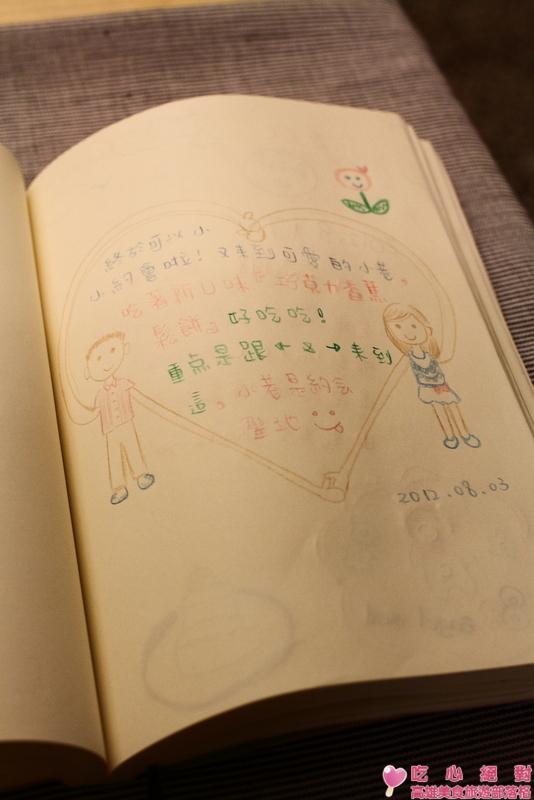 終於可以小
小約會啦！又來到可愛的小巷，
吃著新口味「巧克力香蕉
鬆餅」好吃吃！
重点是跟←又→來到
這。小巷是約会
聖地
2012.08.03
吃心絕對
高雄美食旅遊部落格